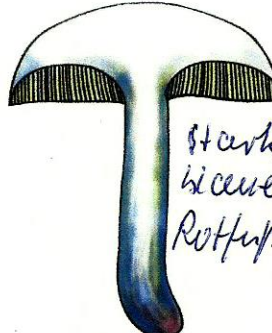 Stark
blaue
Rotfuß